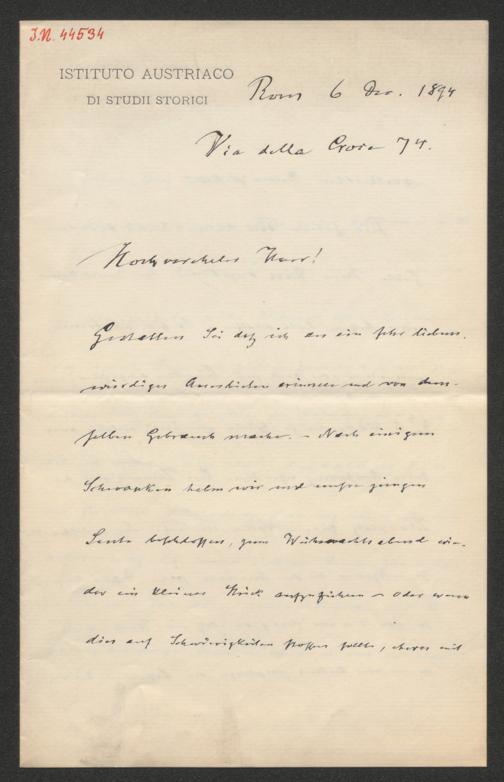 J.N. 44534
ISTITUTO AUSTRIACO
DI STUDII STORICI
Rom 6 Dec. 1894
Via della Croce 74.
Hochverehrter Herr!
Gestatten Sie daß ich an ein sehr liebens-
würdiges Anerbieten erinnere und von dem-
selben Gebrauch mache. – Nach einigem
Schwanken haben wir und unsre jungen
Leute beschlossen, zum Weihnachtsabend wie-
der ein kleines Stück aufzuführen – oder wenn
dies auf Schwierigkeiten stoßen sollte, etwas mit